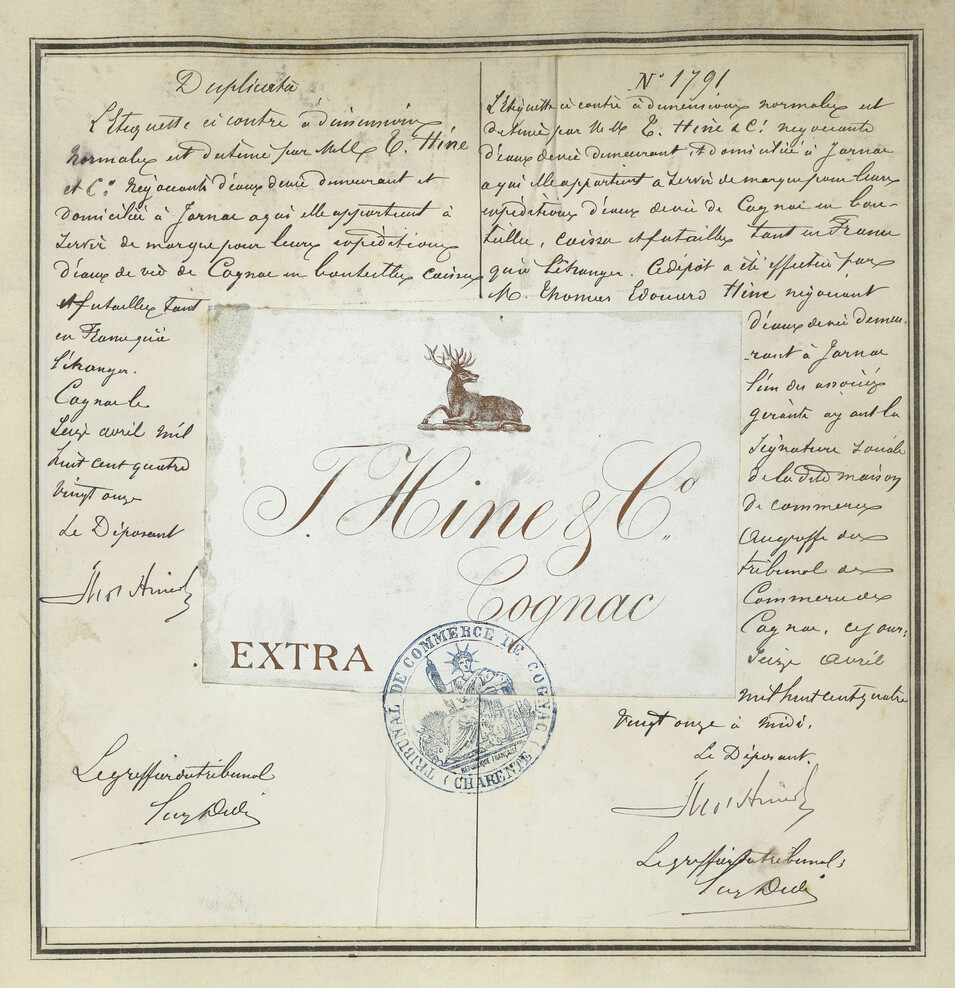 Duplicata
L'Etiquette ci contre à dimensions
normales est destinée par MM. T. Hine
et Co. Négociants d'eaux de vie demeurant et
domiciliés à Jarnac a qui elle appartient à
servir de marque pour leurs expéditions
d'eaux de vie de Cognac en bouteilles caisses
et futailles tant
en France qu'à
l'étranger.
Cognac le
Seize avril mil
huit cent quatre
vingt onze
Le Déposant
Thos Hine
Le greffier du tribunal
No 1791
L'Etiquette ci contre à dimensions normales est
destinée par MM. T. Hine & Co. négociants
d'eaux de vie demeurant, et domiciliés à Jarnac
a qui elle appartient a servir de marque pour leurs
expéditions d'eaux de vie de Cognac en bou-
teilles, caisses et futailles tant en France
qu'à l'étranger. Ce dépôt a été effectué par
M. Thomas Edouard Hine négociant
d'eaux de vie demeu-
rant à Jarnac
l'un des associés
gérants ayant la
signature sociale
de la dite maison
de commerce
Au greffe du
tribunal de
Commerce de
Cognac, ce jour
Seize Avril
mil huit cent quatre
vingt onze à midi.
Le Déposant.
Thos Hine
Le greffier du tribunal
T. Hine & Co.
Cognac
EXTRA
TRIBUNAL DE COMMERCE DE COGNAC
REPUBLIQUE FRANÇAISE
(CHARENTE)